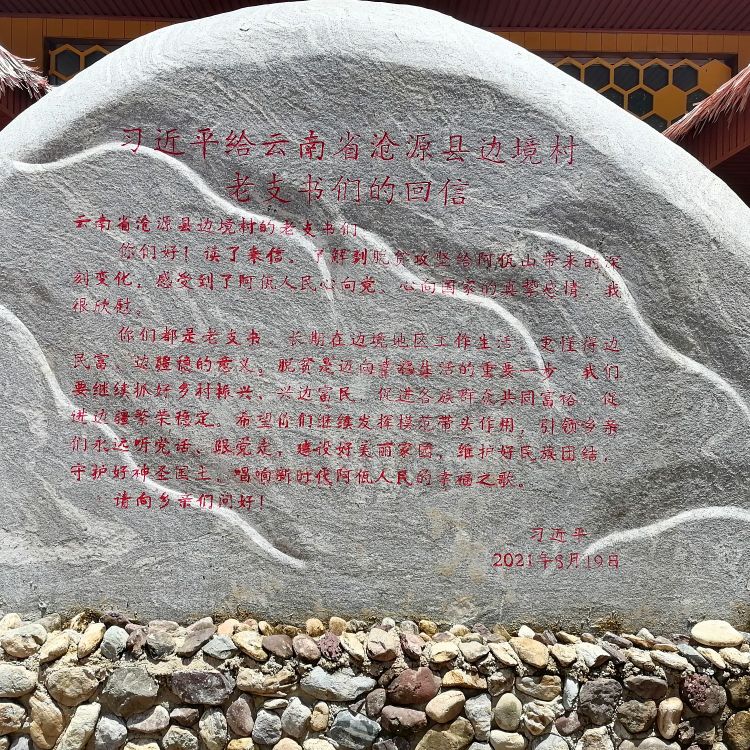 习近平给云南省沧源县边境村
老支书们的回信
云南省沧源县边境村的老支书们
你们好！读了来信，了解到脱贫攻坚给阿佤山带来的深
刻变化，感受到了阿佤人民心向党、心向国家的真挚感情，我
很欣慰。
你们都是老支书，长期在边境地区工作生活，更懂得边
民富、边疆稳的意义。脱贫是迈向幸福生活的重要一步，我们
要继续抓好乡村振兴、兴边富民，促进各族群众共同富裕，促
进边疆繁荣稳定。希望你们继续发挥模范带头作用，引领乡亲
们永远听党话、跟党走，建设好美丽家园，维护好民族团结，
守护好神圣国土，唱响新时代阿佤人民的幸福之歌。
请向乡亲们问好！
习近平
2021年8月19日